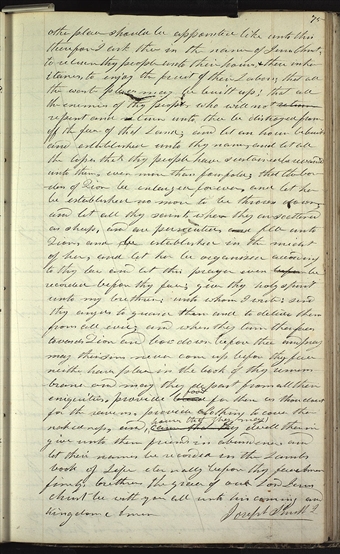 75
other place should be appointed like unto this
therefore I ask thee in the name of Jesus Christ,
to return thy people unto their houses & their inher
itances, to enjoy the fruit of their labors; that all
the waste places may be built up; that all
the enemies of thy people, who will not return
repent and return unto thee be destroyed from
off the face of that Land; and let an house be built
and established unto thy name, and let all
the losses that thy people have sustained be rewarded
unto them, even more than four fold; that the bor
ders of Zion be enlarged forever, and let her
be established no more to be thrown down;
and let all thy saints when they are scattered
as sheep, and are persecuted, flee unto
Zion, and be established in the midst
of her, and let her be organized according
to thy law and let this prayer ever be
recorded before thy face; give thy holy spirit
unto my brethren, unto whom I write; send
thy angels to guard them and to deliver them
from all evil; and when they turn their faces
towards Zion and bow down before thee and pray
may their sins never come up before thy face
neither have place in the book of thy remem
brance and may they depart from all their
iniquities, provide food for them as thou doest
for the ravens, provide clothing to cover their
nakedness, and houses that they may dwell therein
give unto them friends in abundance, and
let their names be recorded in the Lambs
book of Life eternally before thy face Amen
finally brethren the grace of our Lord Jesus
Christ be with you all until his coming and
kingdom Amen
Joseph Smith Jr